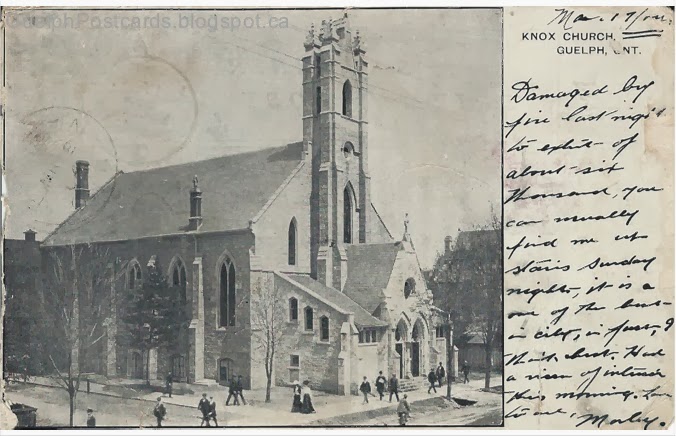 GuelphPostcards.blogspot.ca
Mar. 17/
KNOX CHURCH,
GUELPH, ONT.
Damaged by
fire last night
to extent of
about six
thousand, you
can usually
find me up
stairs Sunday
nights, it is a
one of the best
in city, in fact, I
think best. Had
a view of interior
this morning. Love
to one, Morley.